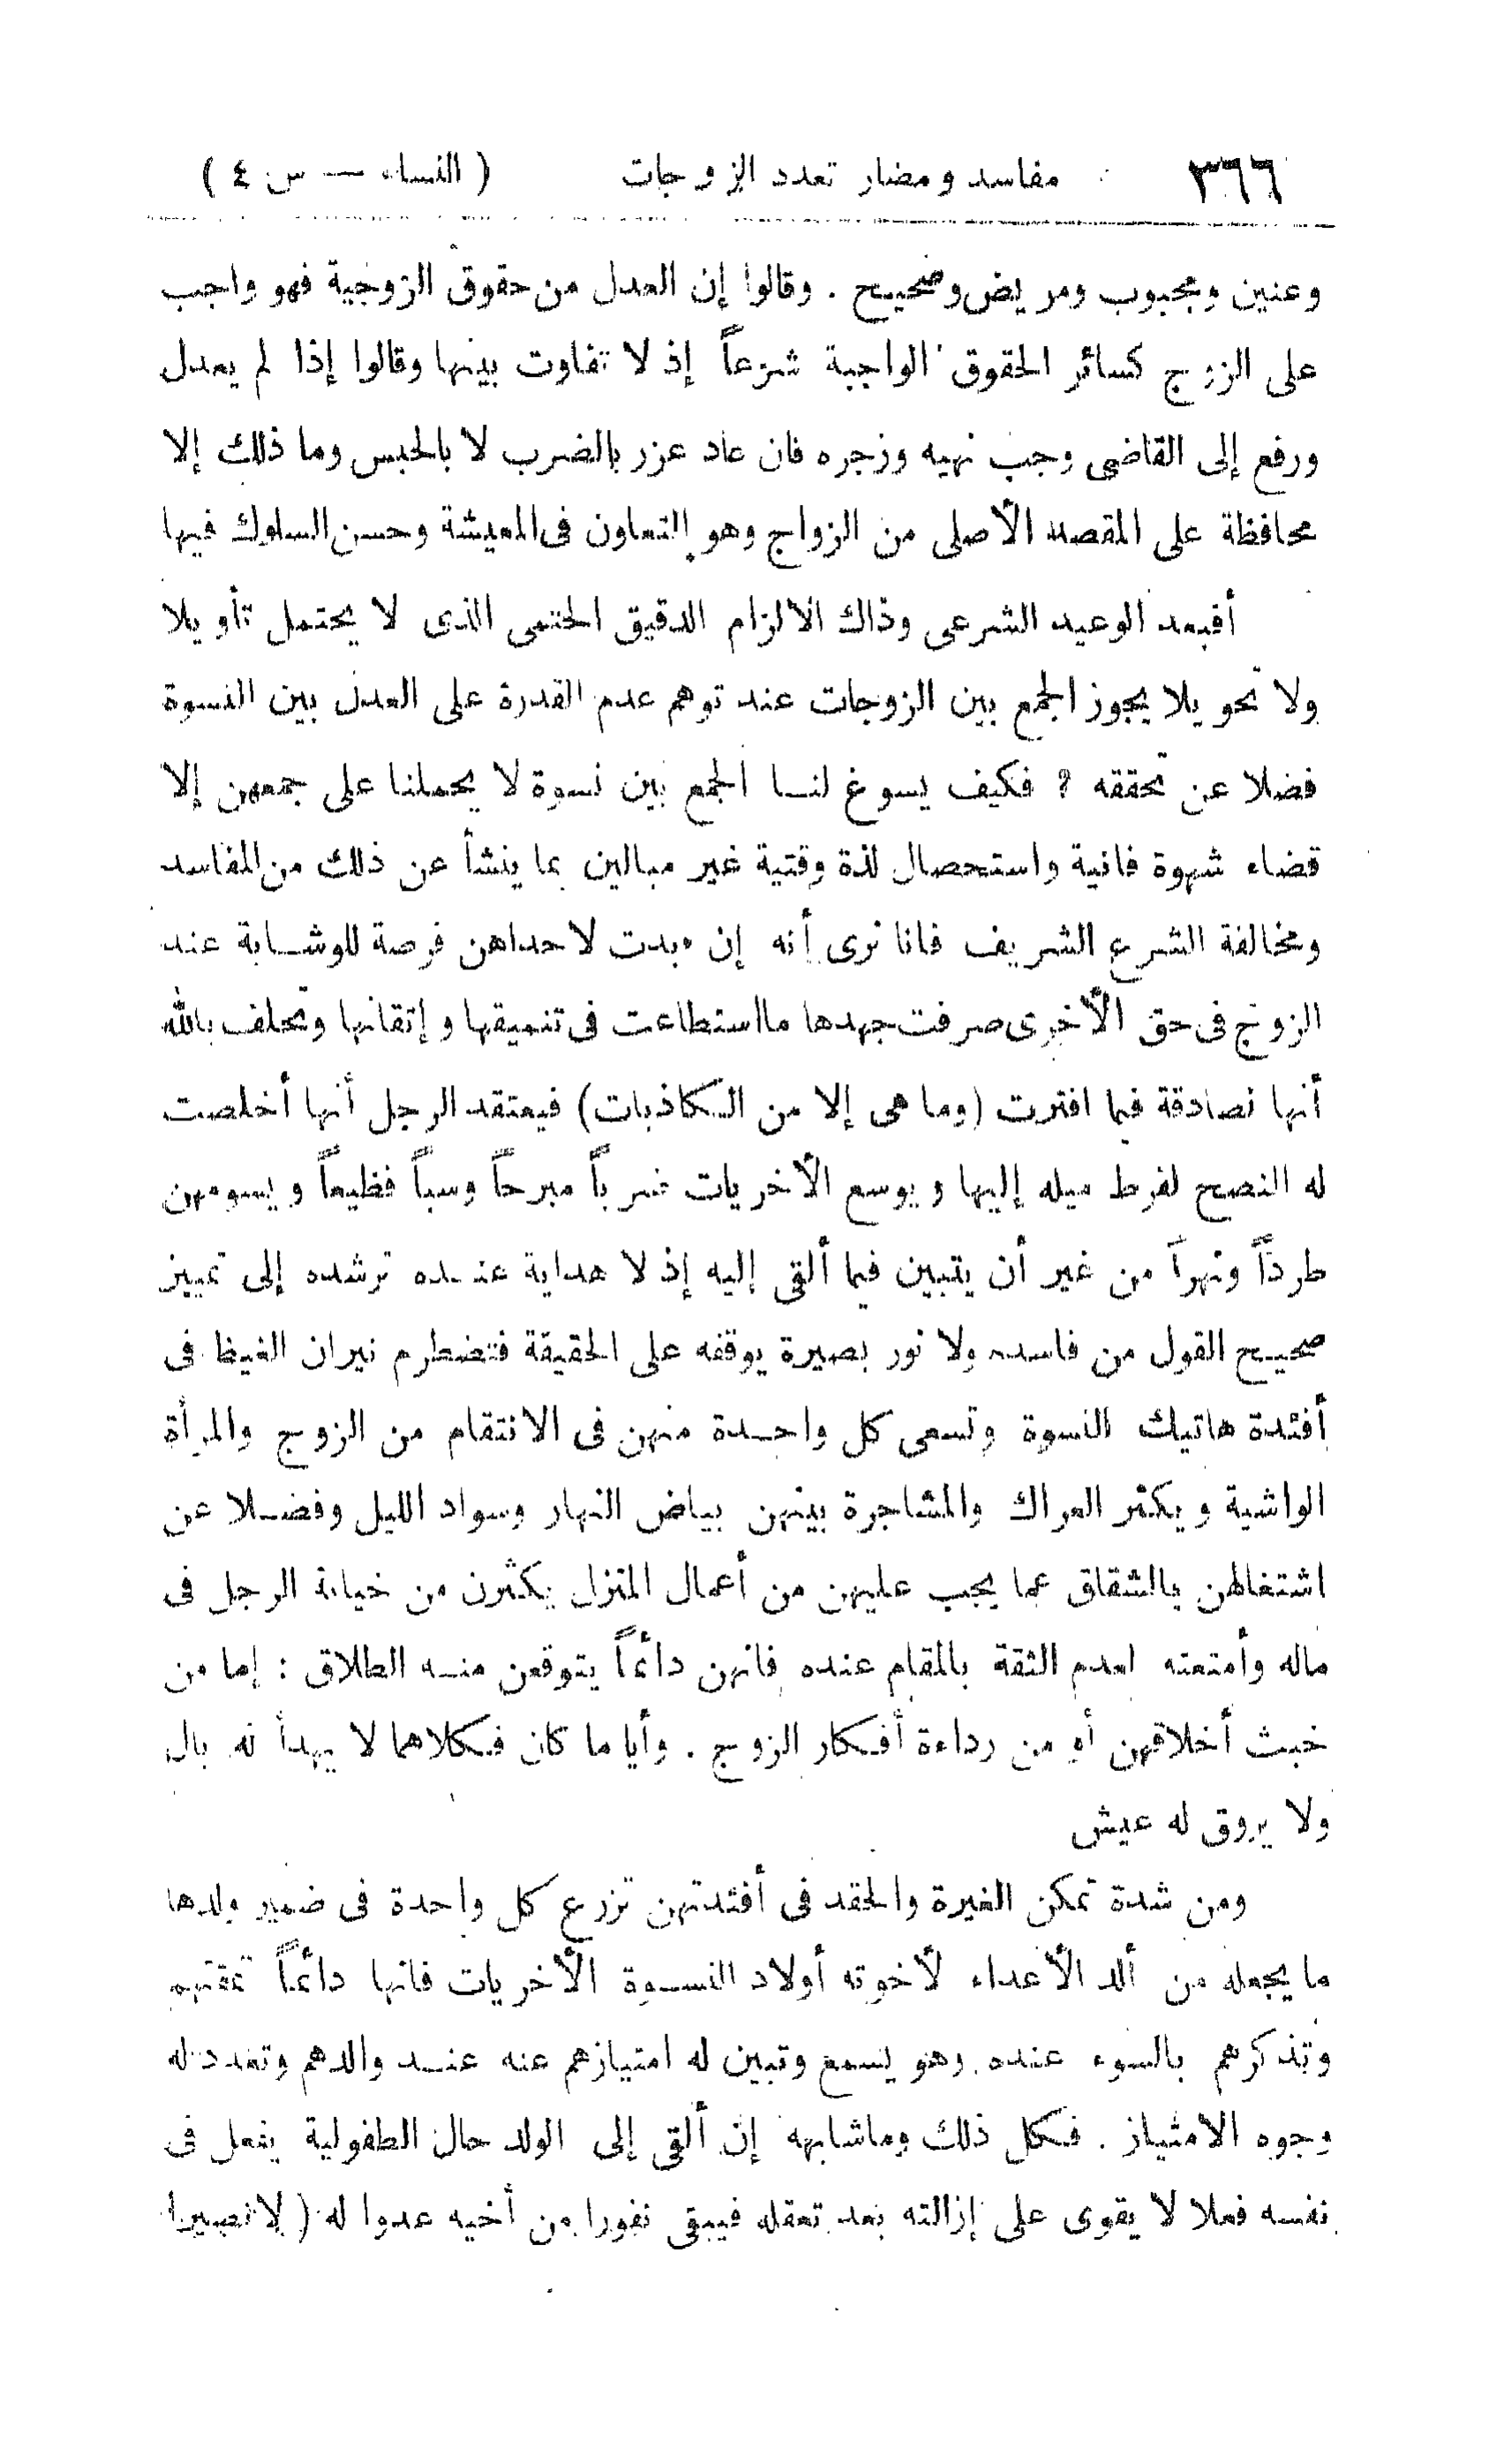 ٣٦٦ مفاسد ومضار تعدد الزوجات ( النساء — س ٤ )
وعنين ومجبوب ومريض وصحيح . وقالوا إن العدل من حقوق الزوجية فهو واجب
على الزوج كسائر الحقوق الواجبة شرعاً إذ لا تفاوت بينها وقالوا إذا لم يعدل
ورفع إلى القاضى وجب نهيه وزجره فان عاد عزر بالضرب لا بالحبس وما ذلك إلا
محافظة على المقصد الأصلى من الزواج وهو التعاون فى المعيشة وحسن السلوك فيها
أفبعد الوعيد الشرعى وذاك الالزام الدقيق الحتمى الذى لا يحتمل تأويلا
ولا تحويلا يجوز الجمع بين الزوجات عند توهم عدم القدرة على العدل بين النسوة
فضلا عن تحققه ؟ فكيف يسوغ لنا الجمع بين نسوة لا يحملنا على جمعهن إلا
قضاء شهوة فانية واستحصال لذة وقتية غير مبالين بما ينشأ عن ذلك من المفاسد
ومخالفة الشرع الشريف فانا نرى أنه إن بدت لاحداهن فرصة للوشاية عند
الزوج فى حق الأخرى صرفت جهدها ما استطاعت فى تنميقها وإتقانها وتحلف بالله
أنها لصادقة فيما افترت (وما هى إلا من الكاذبات) فيعتقد الرجل أنها أخلصت
له النصح لفرط ميله إليها ويوسع الأخريات ضرباً مبرحاً وسباً فظيعاً ويسومهن
طرداً ونهراً من غير أن يتبين فيما ألقى إليه إذ لا هداية عنده ترشده إلى تمييز
صحيح القول من فاسده ولا نور بصيرة يوقفه على الحقيقة فتضطرم نيران الغيظ فى
أفئدة هاتيك النسوة وتسعى كل واحدة منهن فى الانتقام من الزوج والمرأة
الواشية ويكثر العراك والمشاجرة بينهن بياض النهار وسواد الليل وفضلا عن
اشتغالهن بالشقاق عما يجب عليهن من أعمال المنزل يكثرن من خيانة الرجل فى
ماله وأمتعته لعدم الثقة بالمقام عنده فانهن دائماً يتوقعن منه الطلاق : إما من
خبث أخلاقهن أو من رداءة أفكار الزوج . وأيا ما كان فكلاهما لا يهدأ له بال
ولا يروق له عيش
ومن شدة تمكن الغيرة والحقد فى أفئدتهن تزرع كل واحدة فى ضمير ولدها
ما يجعله من ألد الأعداء لأخوته أولاد النسوة الأخريات فانها دائماً تمقتهم
وتذكرهم بالسوء عنده وهو يسمع وتبين له امتيازهم عنه عند والدهم وتعدد له
وجوه الامتياز . فكل ذلك وما شابهه إن ألقى إلى الولد حال الطفولية يفعل فى
نفسه فعلا لا يقوى على إزالته بعد تعقله فيبقى نفورا من أخيه عدوا له ( لا نصيرا